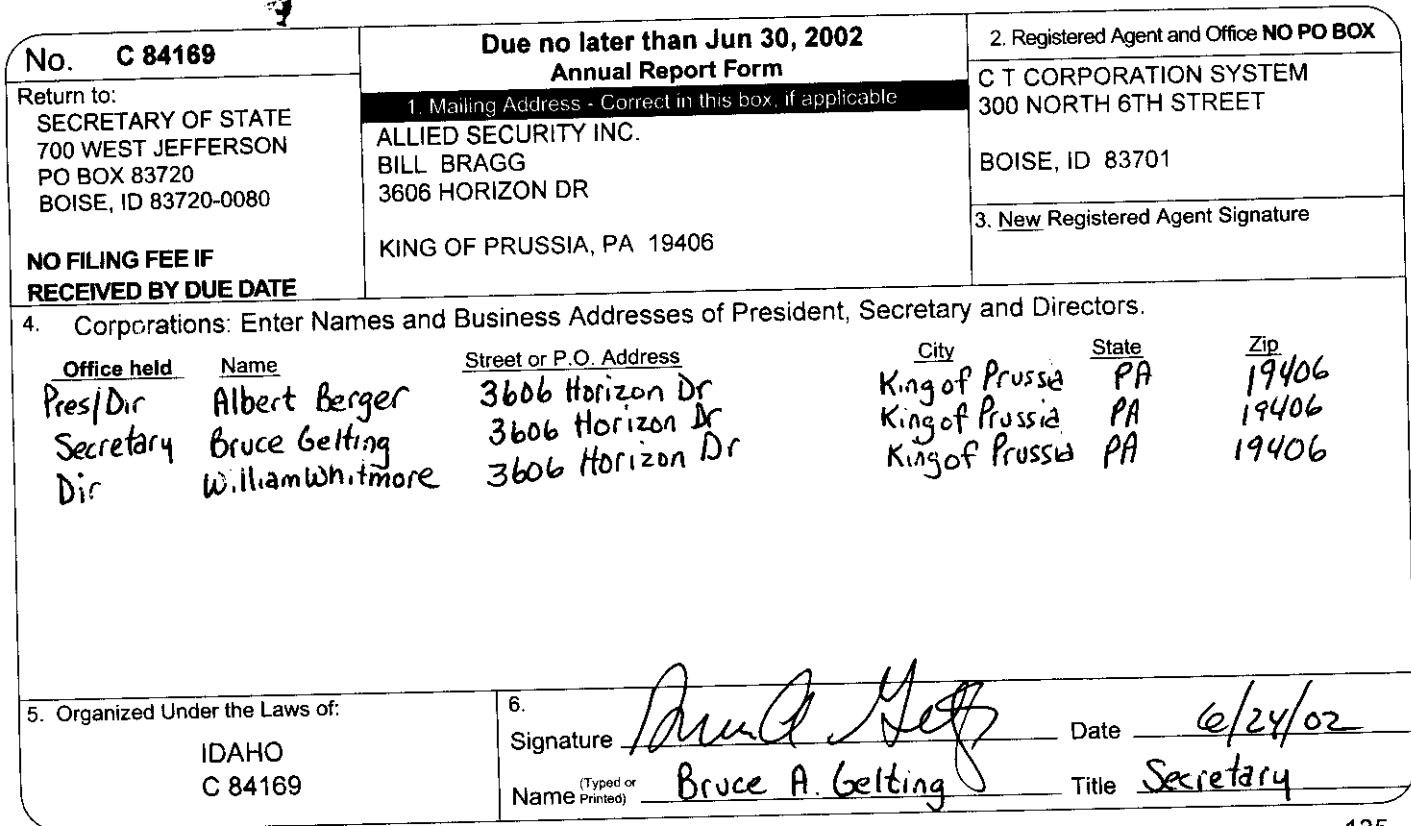 No. C 84169
Return to:
SECRETARY OF STATE
700 WEST JEFFERSON
PO BOX 83720
BOISE, ID 83720-0080
NO FILING FEE IF
RECEIVED BY DUE DATE
Due no later than Jun 30, 2002
Annual Report Form
1. Mailing Address - Correct in this box, if applicable
ALLIED SECURITY INC.
BILL BRAGG
3606 HORIZON DR
KING OF PRUSSIA, PA 19406
2. Registered Agent and Office NO PO BOX
C T CORPORATION SYSTEM
300 NORTH 6TH STREET
BOISE, ID 83701
3. New Registered Agent Signature
4. Corporations: Enter Names and Business Addresses of President, Secretary and Directors.
Office held Name Street or P.O. Address City State Zip
Pres/Dir Albert Berger 3606 Horizon Dr King of Prussia PA 19406
Secretary Bruce Gelting 3606 Horizon Dr King of Prussia PA 19406
Dir William Whitmore 3606 Horizon Dr King of Prussia PA 19406
5. Organized Under the Laws of:
IDAHO
C 84169
6.
Signature Date 6/24/02
Name (Typed or Printed) Bruce A. Gelting Title Secretary